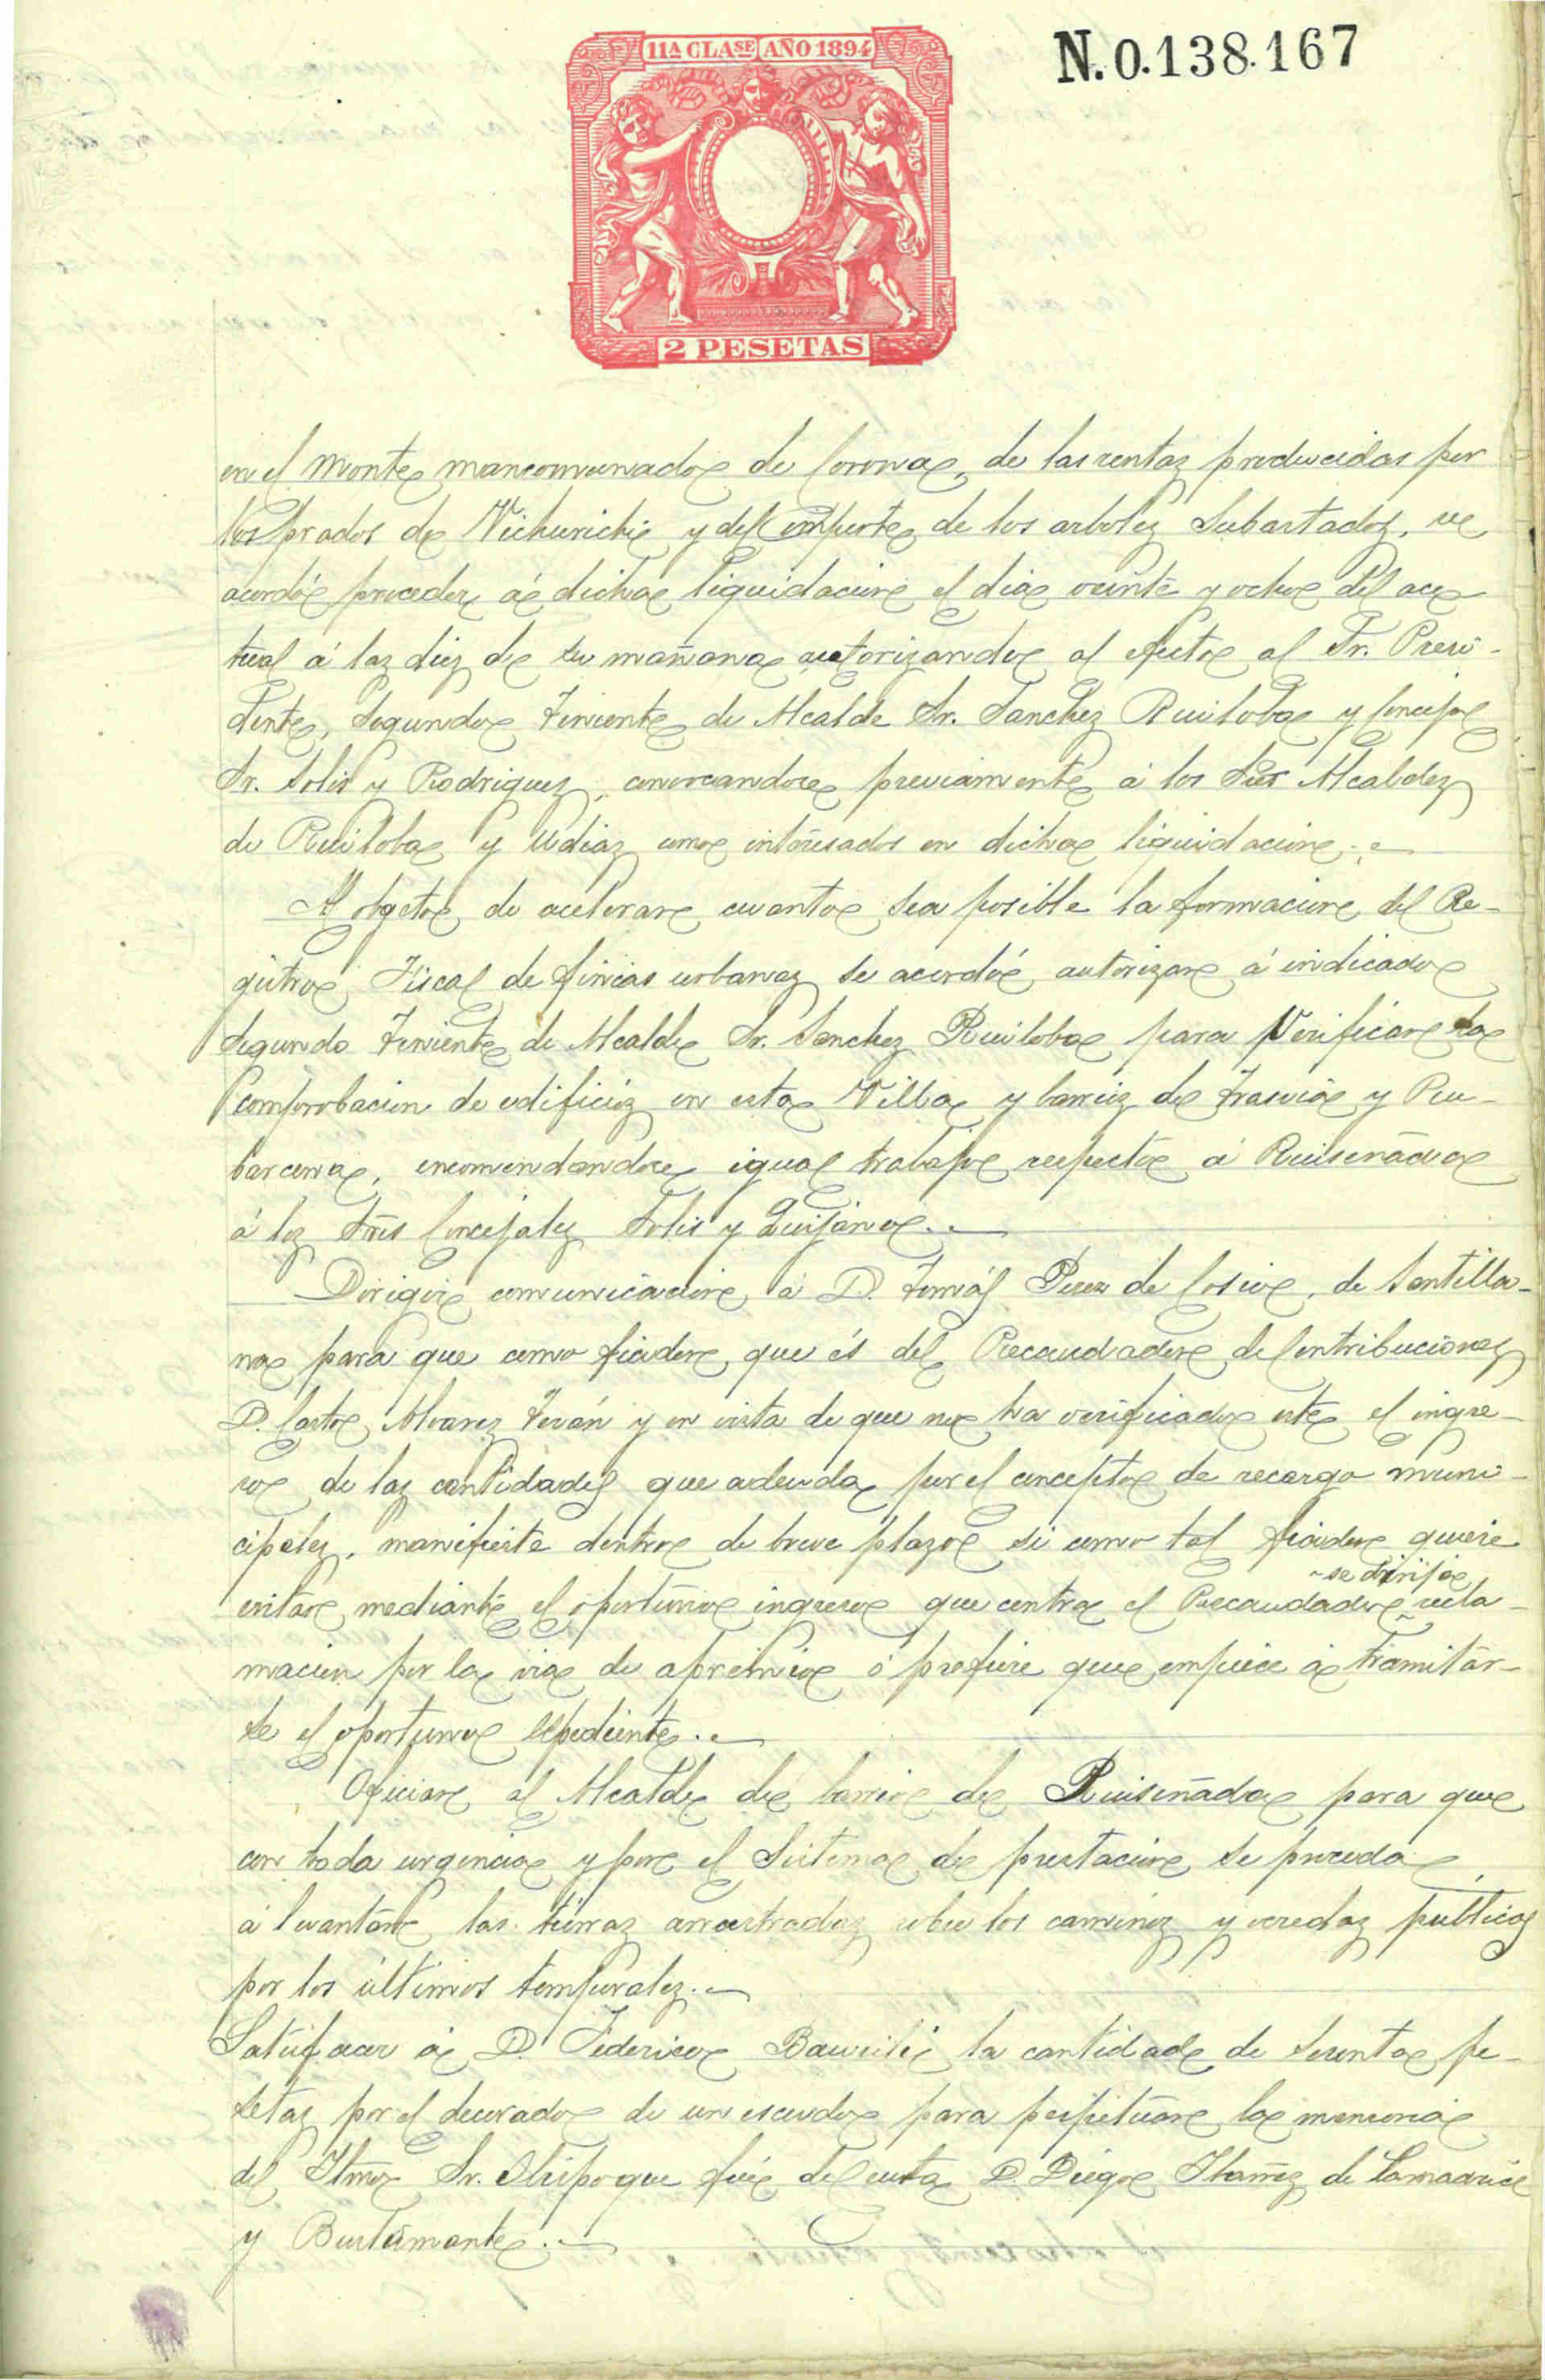 11A CLASE AÑO 1894
N.0.138.167
2 PESETAS
en el monte mancomunado de Corona, de las rentas producidas por
los prados de Vichurichi y del importe de los arboles Subastados, se
acordó proceder á dicha liquidacion el dia veinte y ocho del ac-
tual á las diez de su mañana autorizando al efecto al Sr. Presi-
dente, Segundo Teniente de Alcalde Sr. Sanchez Ruiloba y Concejal
Sr. Solis y Rodriguez, convocandose previamente á los Sres Alcaldes
de Ruiloba y Udias como interesados en dicha liquidacion.
Al objeto de acelerar cuanto sea posible la formacion del Re-
gistro Fiscal de fincas urbanas se acordó autorizar á indicado
Segundo Teniente de Alcalde Sr. Sanchez Ruiloba para Verificar la
comprobacion de edificios en esta Villa y barrios de Trasvia y Ru-
barcena, encomendandose igual trabajo respecto á Ruiseñada
á los Sres Concejales Solis y Quijano.
Dirigir comunicacion á D. Tomás Perez de Cosio, de Santilla-
na para que como fiador que és del Recaudador de Contribuciones
D. Castor Alvarez Terán y en vista de que no ha verificado este el ingre-
so de las cantidades que adeuda por el concepto de recargo muni-
cipales, manifieste dentro de breve plazo si como tal fiador quiere
evitar mediante el oportuno ingreso que contra el Recaudador recla-
se dirija
macion por la via de apremio ó prefiere que empiece á tramitar-
se el oportuno expediente.
Oficiar al Alcalde de barrio de Ruiseñada para que
con toda urgencia y por el Sistema de prestacion se proceda
á levantar las tierras arrastradas sobre los caminos y veredas públicas
por los últimos temporales.
Satisfacer á D. Federico la cantidad de sesenta pe-
setas por el decorado de un escudo para perpetuar la memoria
del Iltmo Sr. Obispo que fué de D. Diego Ibañez de Lamadrid
y Bustamante.